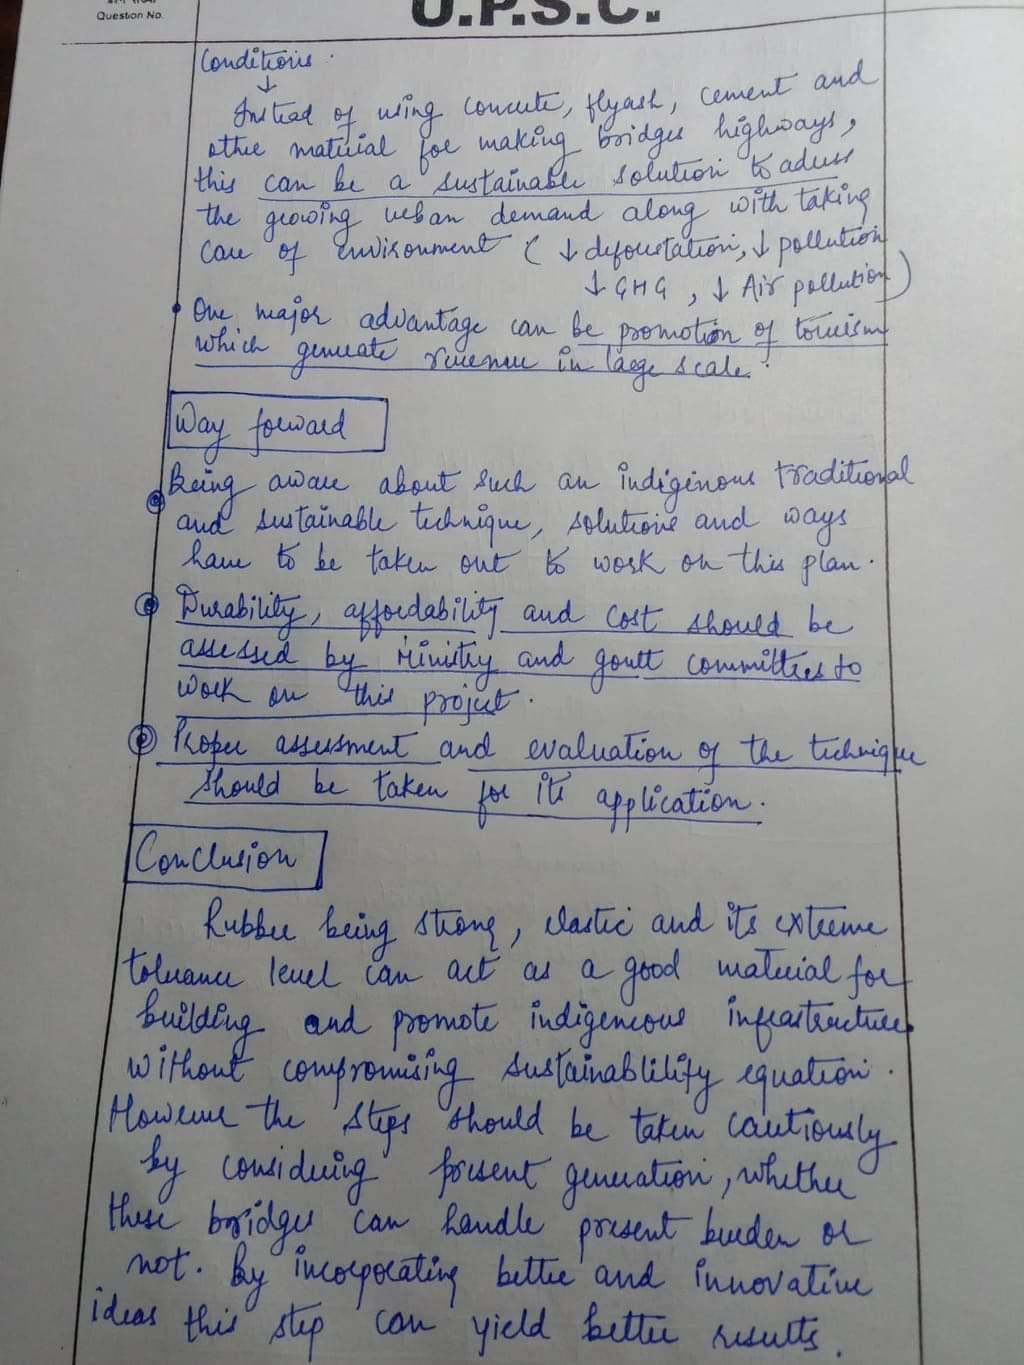 Question No.
U.P.S.C.
Conditions.
↓
Instead of using concrete, flyash, cement and
other material for making bridges highways,
this can be a sustainable solution to adress
the growing urban demand along with taking
care of environment (↓ deforestation, ↓ pollution
↓ GHG, ↓ Air pollution)
• One major advantage can be promotion of tourism
which generate revenue in large scale.
Way forward
Being aware about such an indiginous traditional
and sustainable technique, solutions and ways
have to be taken out to work on this plan.
Durability, affordability and cost should be
assessed by Ministry and govtt committees to
work on this project.
Proper assessment and evaluation of the technique
should be taken for its application.
Conclusion
Rubber being strong, elastic and its extreme
tolerance level can act as a good material for
building and promote indigeneous infrastructure
without compromising sustainablility equation.
However the steps should be taken cautiously
by considering present generation, whether
these bridges can handle present burden or
not. By incorporating better and innovative
ideas this step can yield better results.